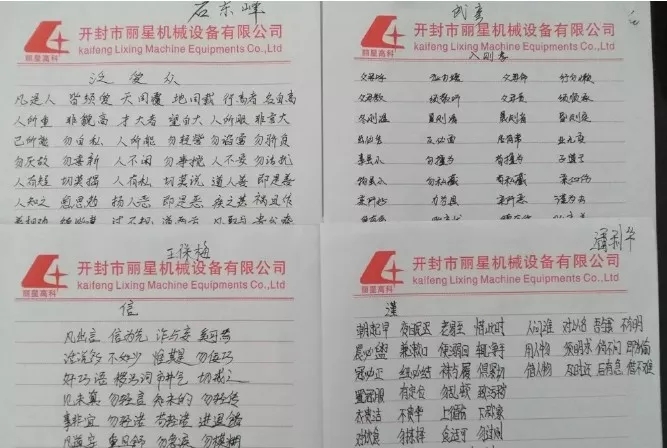 石东峰
丽星高科
开封市丽星机械设备有限公司
kaifeng Lixing Machine Equipments Co.,Ltd
泛爱众
凡是人 皆须爱 天同覆 地同载 行高者 名自高
人所重 非貌高 才大者 望自大 人所服 非言大
己所能 勿自私 人所能 勿轻訾 勿谄富 勿骄贫
勿厌故 勿喜新 人不闲 勿事搅 人不安 勿话扰
人有短 切莫揭 人有私 切莫说 道人善 即是善
人知之 愈思勉 扬人恶 即是恶 疾之甚 祸且作
丽星高科
开封市丽星机械设备有限公司
kaifeng Lixing Machine Equipments Co.,Ltd
入则孝
父母呼 应勿缓 父母命 行勿懒
父母教 须敬听 父母责 须顺承
冬则温 夏则凊 晨则省 昏则定
出必告 反必面 居有常 业无变
事虽小 勿擅为 苟擅为 子道亏
物虽小 勿私藏 苟私藏 亲心伤
亲所好 力为具 亲所恶 谨为去
王保梅
丽星高科
开封市丽星机械设备有限公司
kaifeng Lixing Machine Equipments Co.,Ltd
信
凡出言 信为先 诈与妄 奚可焉
话说多 不如少 惟其是 勿佞巧
切戒之
见未真 勿轻言 知未的 勿轻传
事非宜 勿轻诺 苟轻诺 进退错
凡道字 重且舒 勿急疾 勿模糊
潘利华
丽星高科
开封市丽星机械设备有限公司
kaifeng Lixing Machine Equipments Co.,Ltd
谨
朝起早 夜眠迟 老易至 惜此时 人问谁 对以名 吾与我 不分明
晨必盥 兼漱口 便溺回 辄净手 用人物 须明求 倘不问 即为偷
冠必正 纽必结 袜与履 俱紧切 借人物 及时还 后有急 借不难
置冠服 有定位 勿乱顿 致污秽
衣贵洁 不贵华 上循分 下称家
对饮食 勿拣择 食适可 勿过则